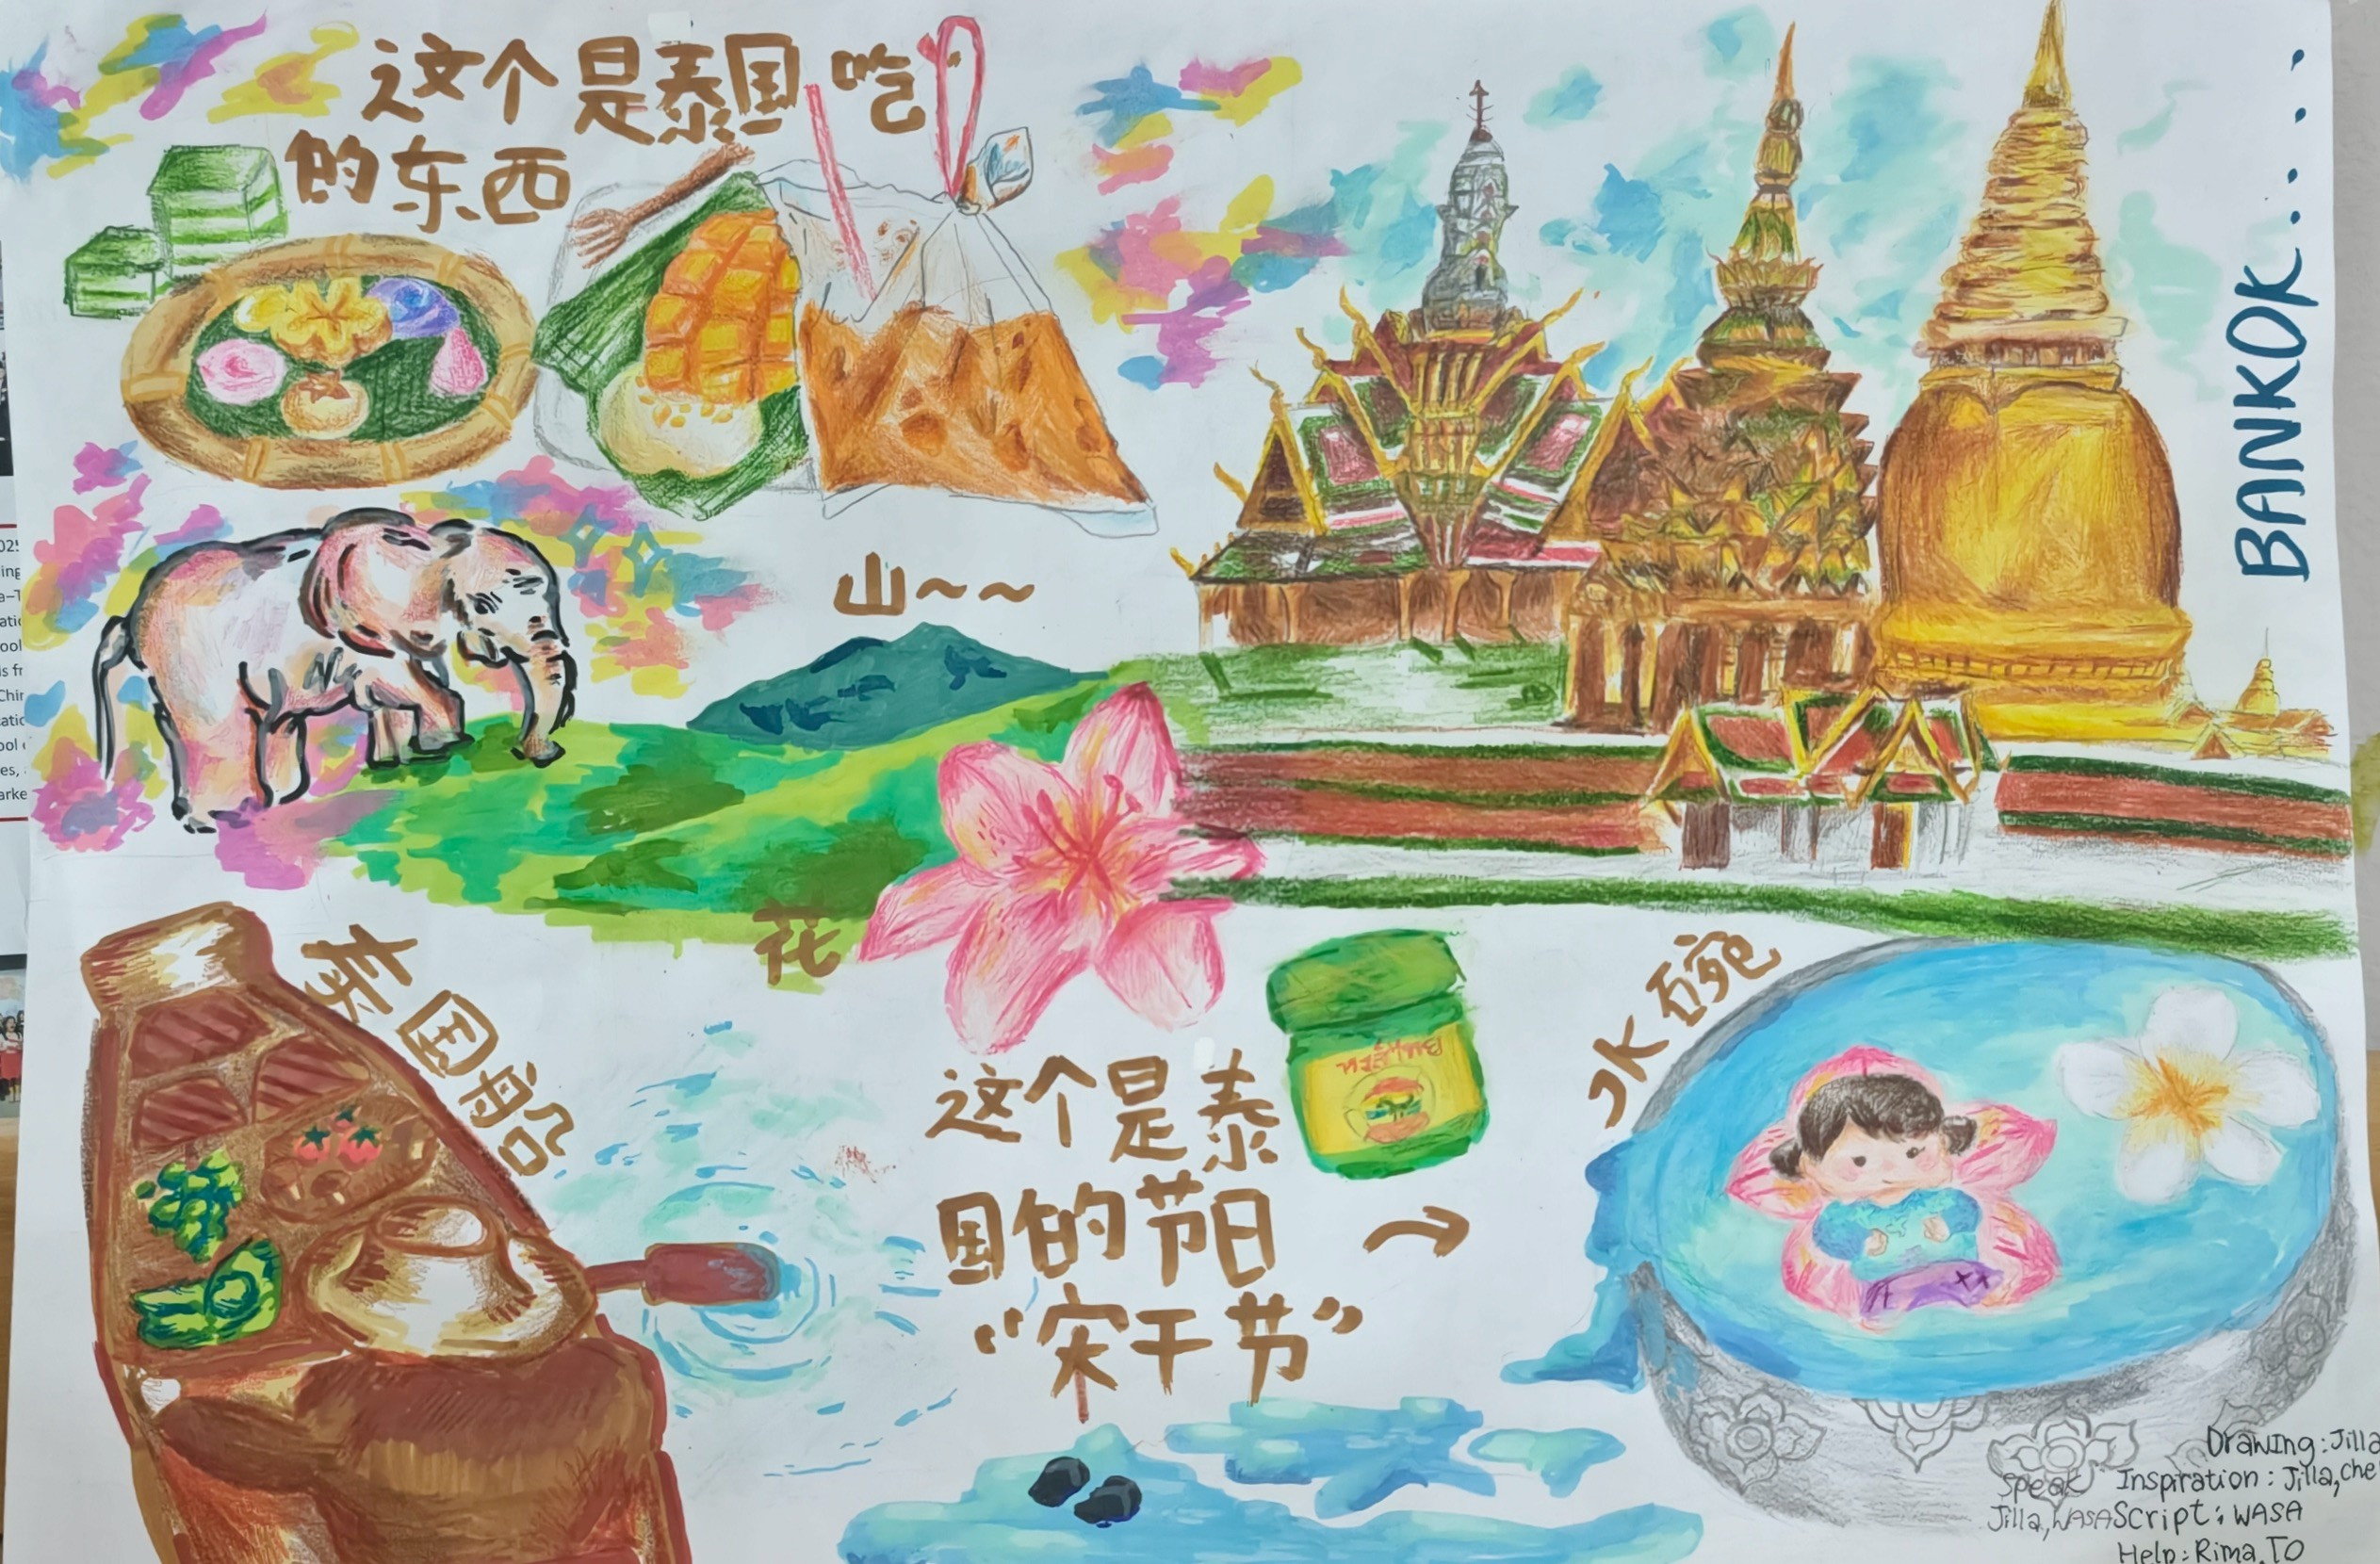 这个是泰国吃
的东西
BANKOK.....
山~~
花
泰国船
JK 碗
这个是泰
国的节日
“宋干节”
Drawing : Jilla
speak Inspiration : Jilla, che
Jilla, WASA Script : WASA
Help : Rima, TO